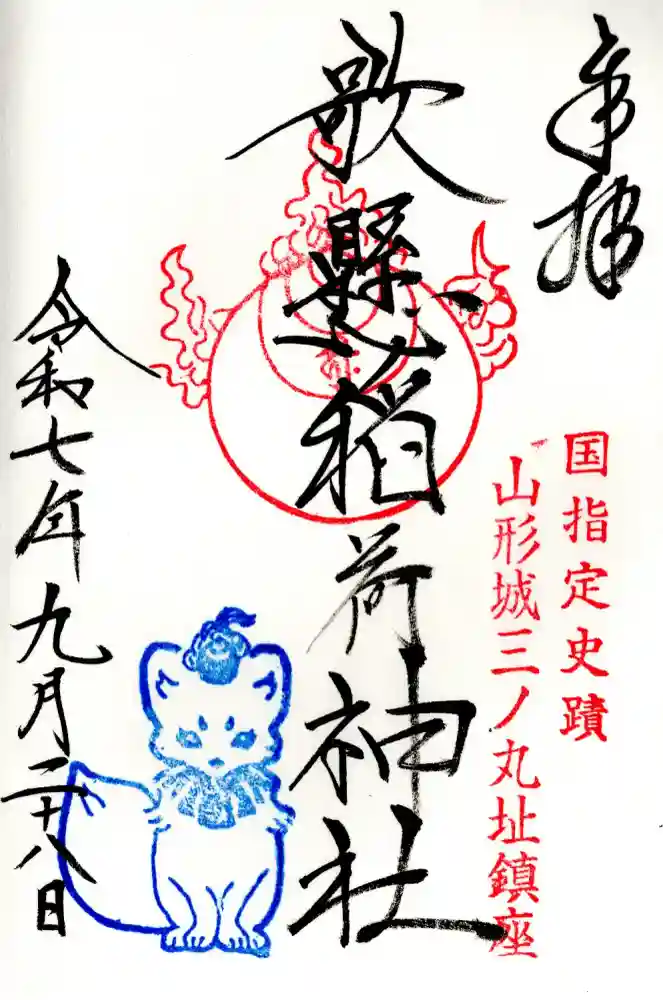 奉拝
国指定史蹟
山形城三ノ丸址鎮座
歌懸稲荷神社
令和七年九月二十八日